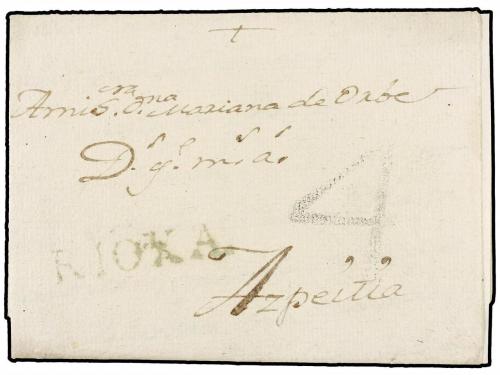 +
A mi S.ra D.ma Mariana de Orbe
D.s g.e m.s a.s
4
RIOXA
Azpeitia